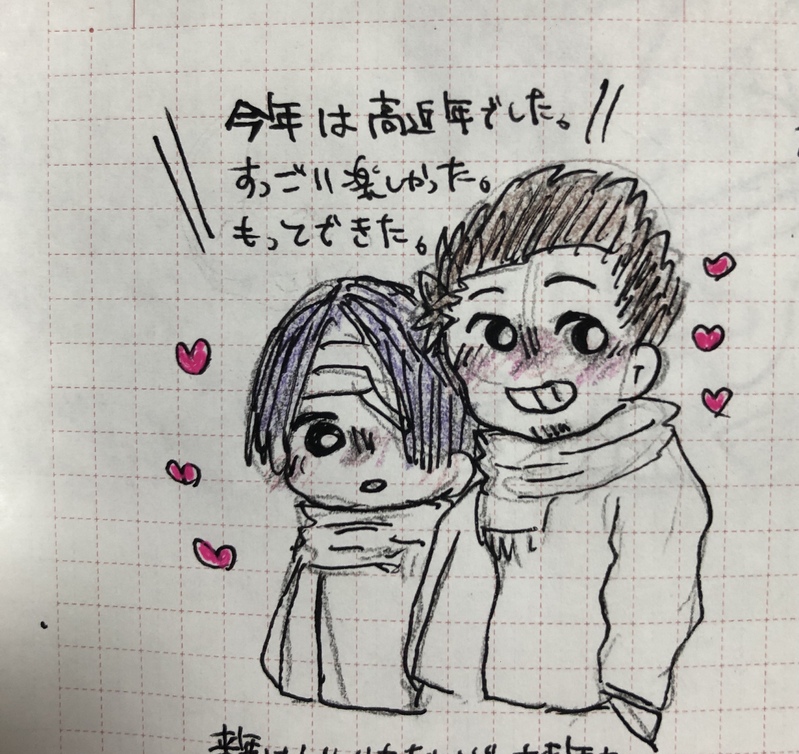 今年は高近年でした。
すっごい楽しかった。
もってできた。